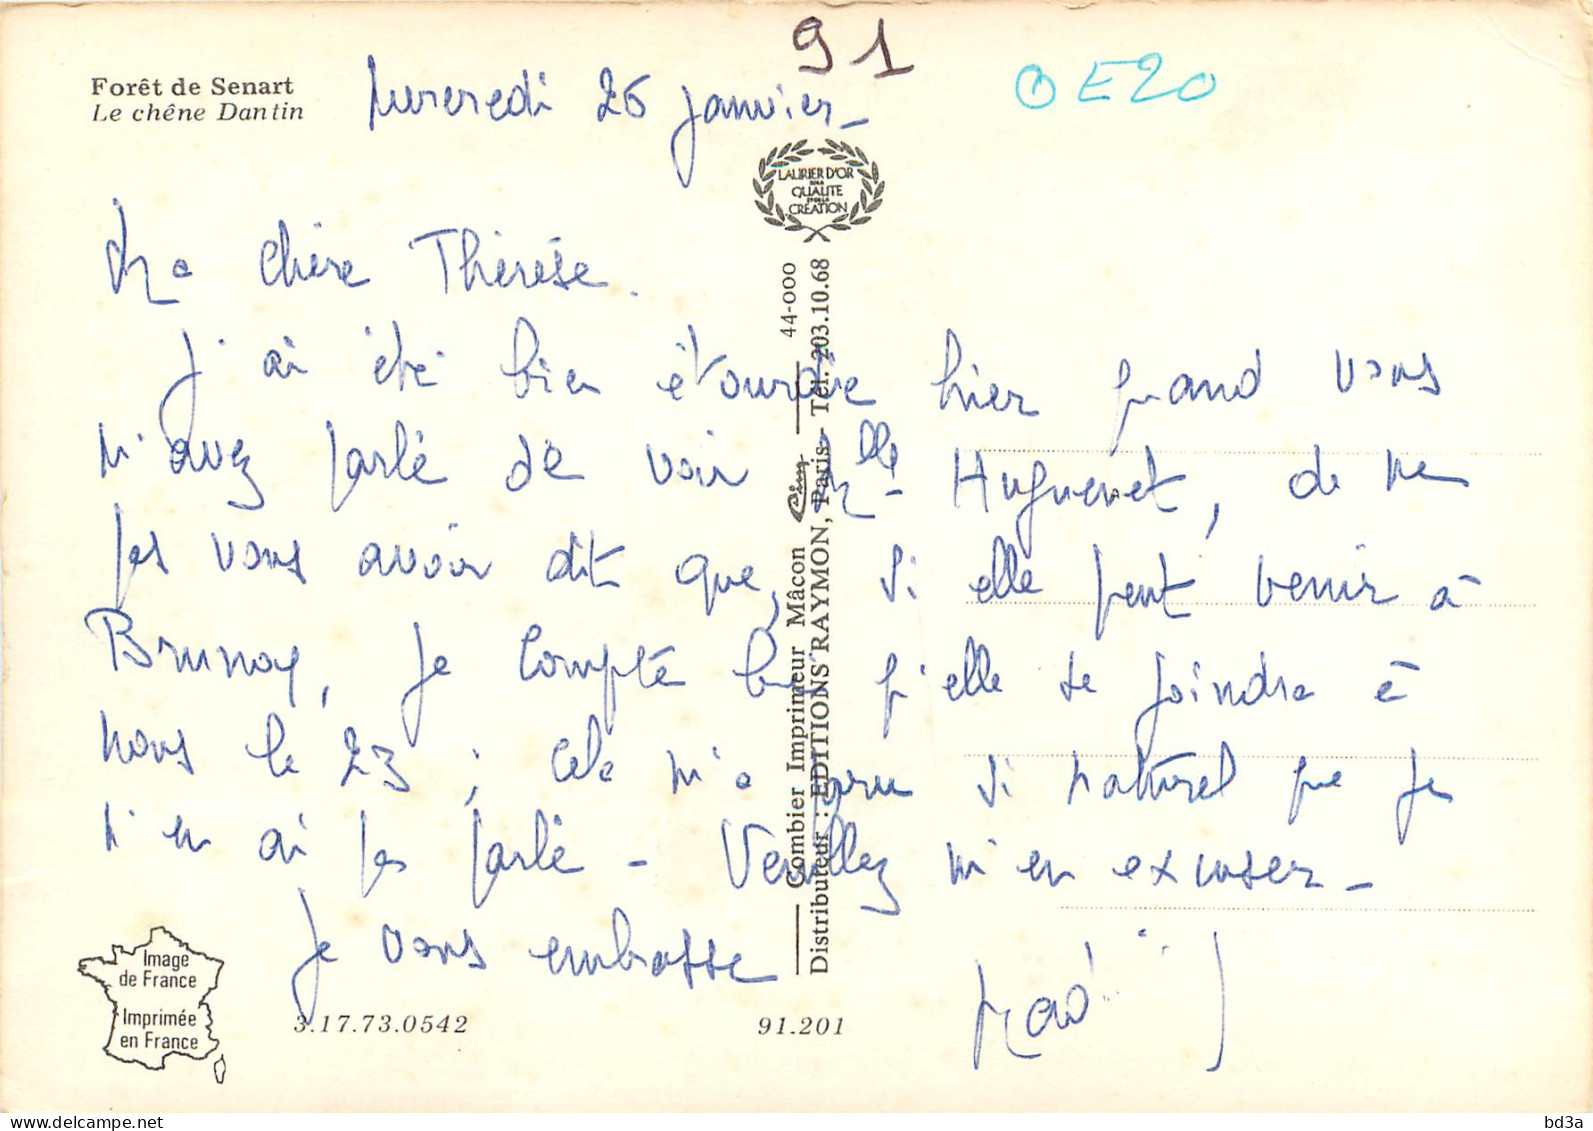 91
OE20
Forêt de Senart
Le chêne Dantin
Mercredi 26 janvier _
LAURIER D'OR
QUALITE
CREATION
Ma chère Thérèse.
J'ai été bien étourdie hier quand vous
m'avez parlé de voir Mlle Huguenet, de ne
pas vous avoir dit que, si elle peut venir à
Brunoy, je compte bien qu'elle se joindra à
nous le 23 ; cela m'a paru si naturel que je
n'en ai pas parlé - Veuillez m'en excuser _
Je vous embrasse
Combier Imprimeur Mâcon Cim 44-000
Distributeur : EDITIONS RAYMON, Paris - Tél. 203.10.68
Image
de France
Imprimée
en France
3.17.73.0542
91.201
bd3a